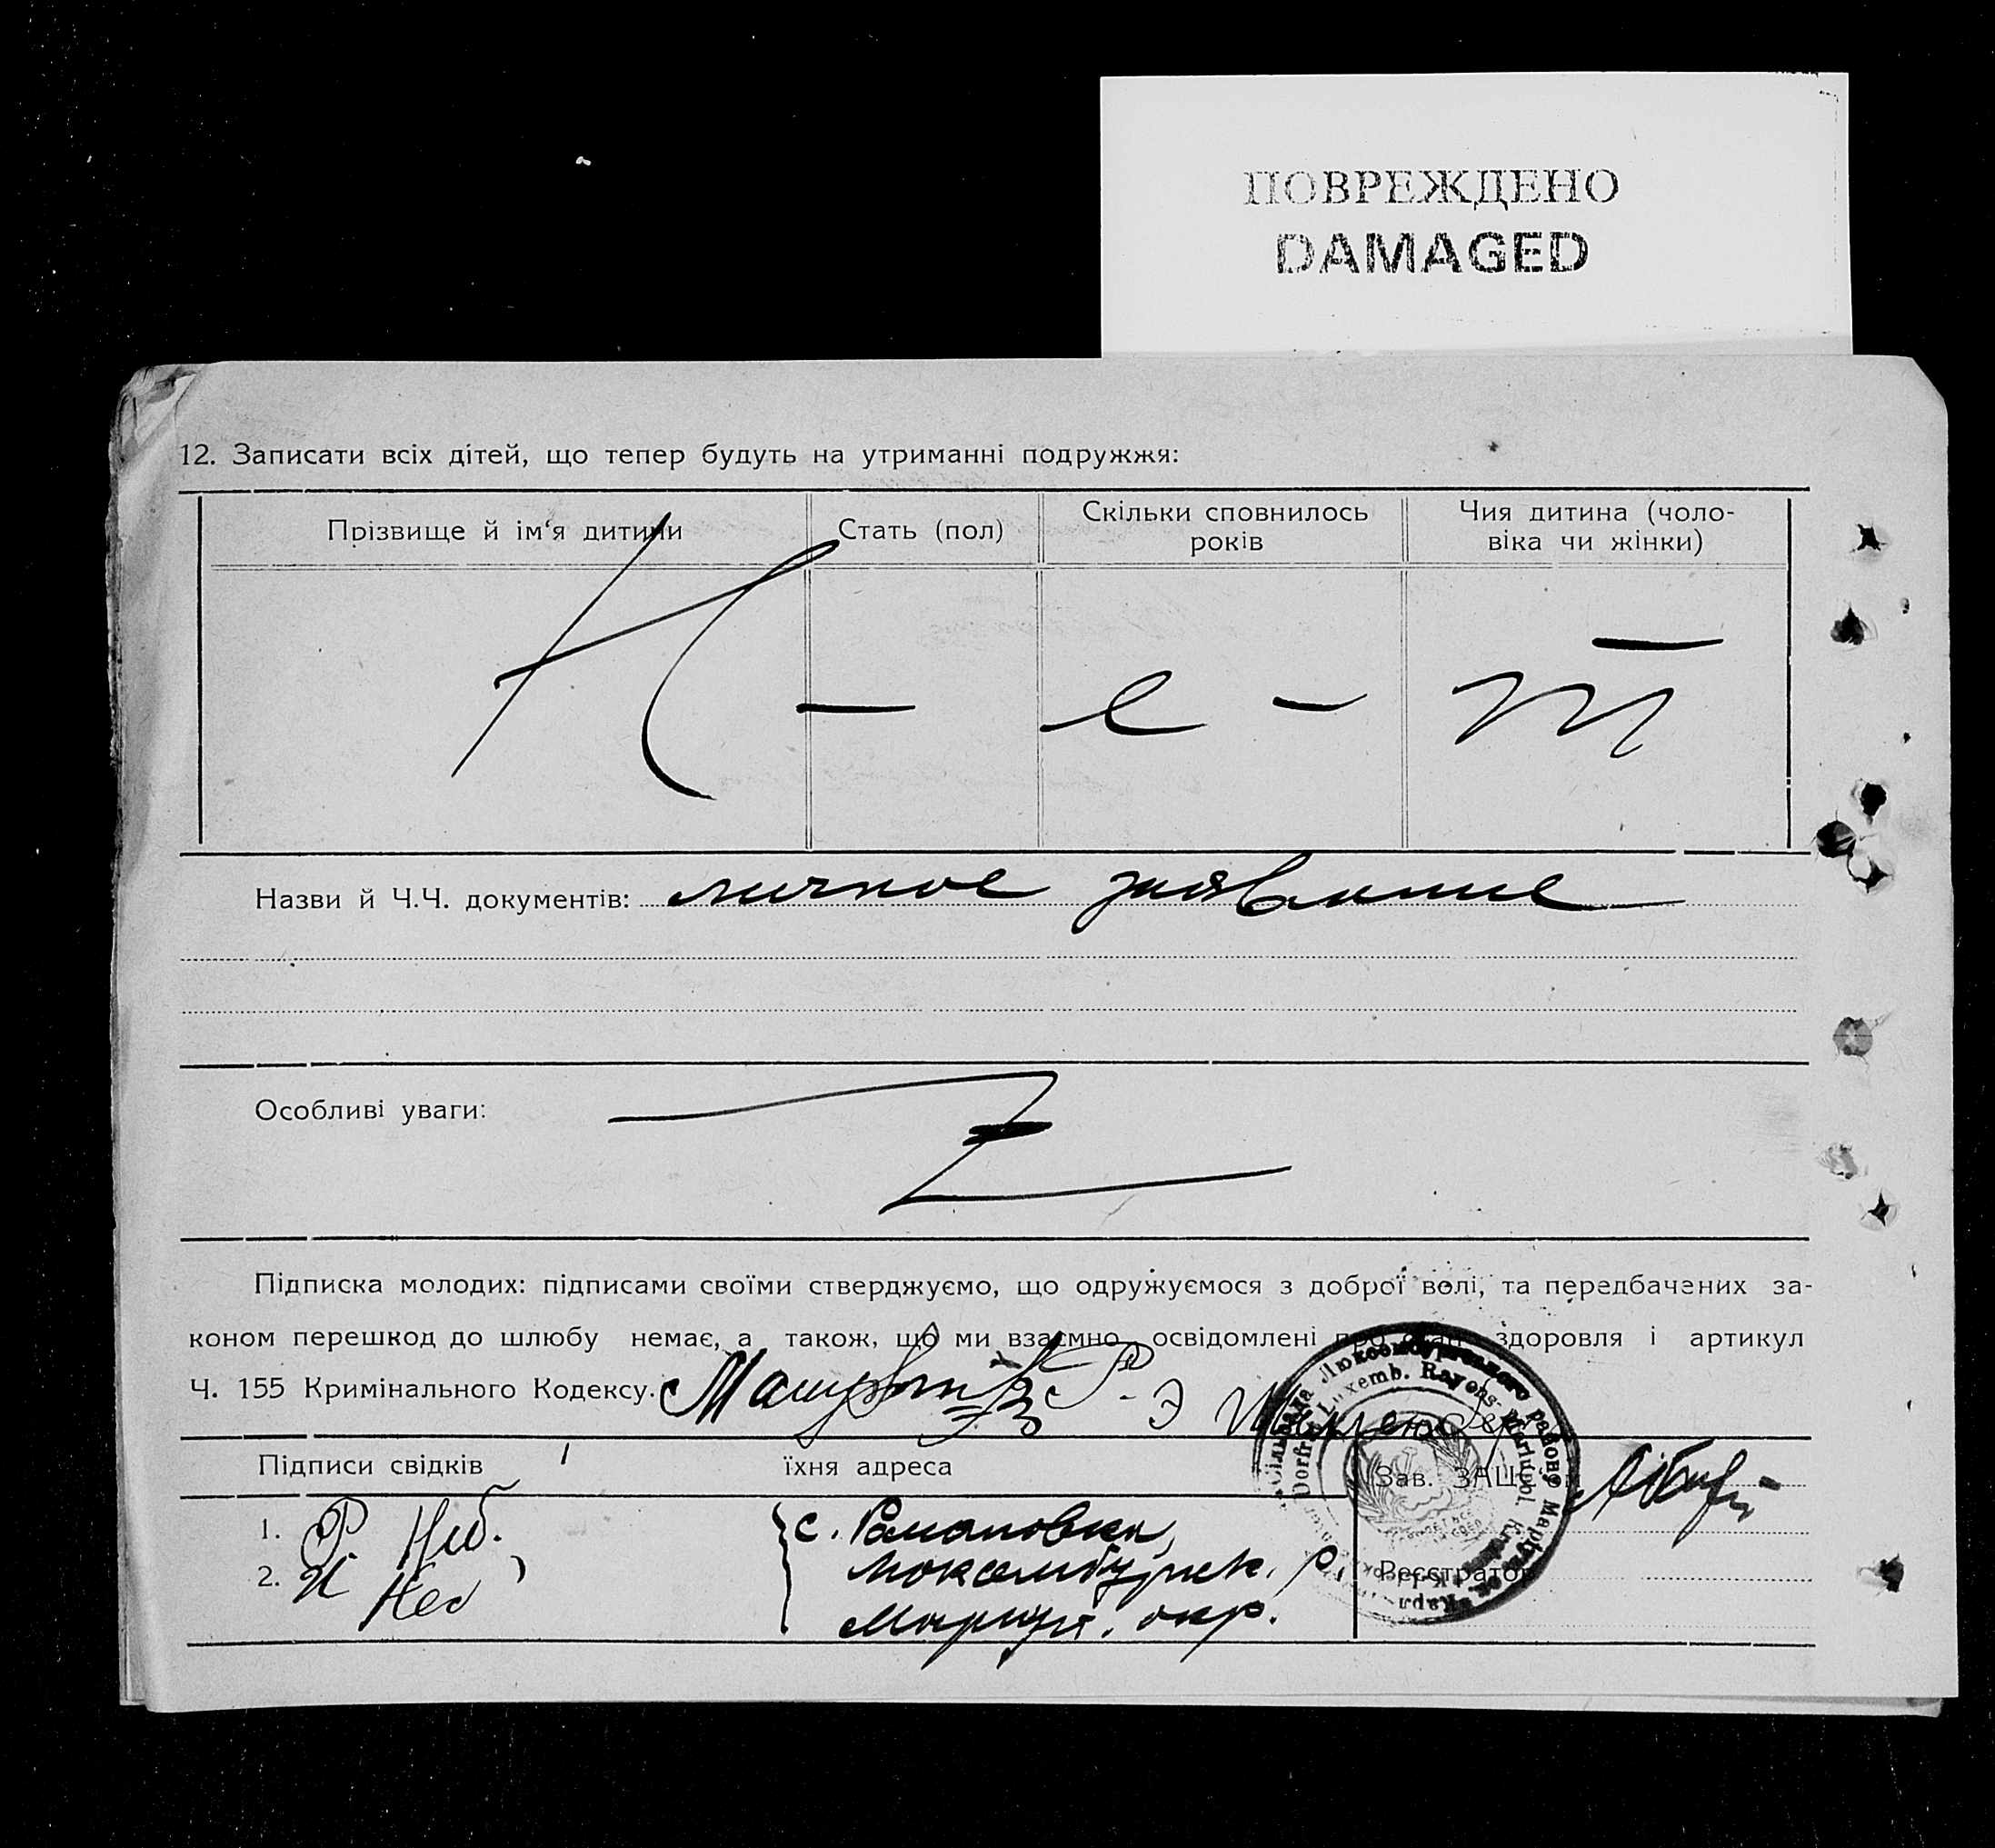 ПОВРЕЖДЕНО
DAMAGED
12. Записати всіх дітей, що тепер будуть на утриманні подружжя:
Прізвище й ім‘я дитини
Стать (пол)
Скільки сповнилось
років
Чия дитина (чоло-
віка чи жінки)
Н - е - т
Назви й Ч.Ч. документів: личное заявление
Особливі уваги:
Підписка молодих: підписами своїми стверджуємо, що одружуємося з доброї волі, та передбачених за-
коном перешкод до шлюбу немає, а також, що ми взаємно освідомлені про стан здоровля і артикул
Ч. 155 Кримінального Кодексу.
Підписи свідків
їхня адреса
Зав. ЗАЦС'ом
1.
2.
с. Романовка,
Люксембургск. р.
Мариуп. окр.
Реєстратор
Люксембургського району Маріуп. ок.
Luxemb. Rayons Mariupol